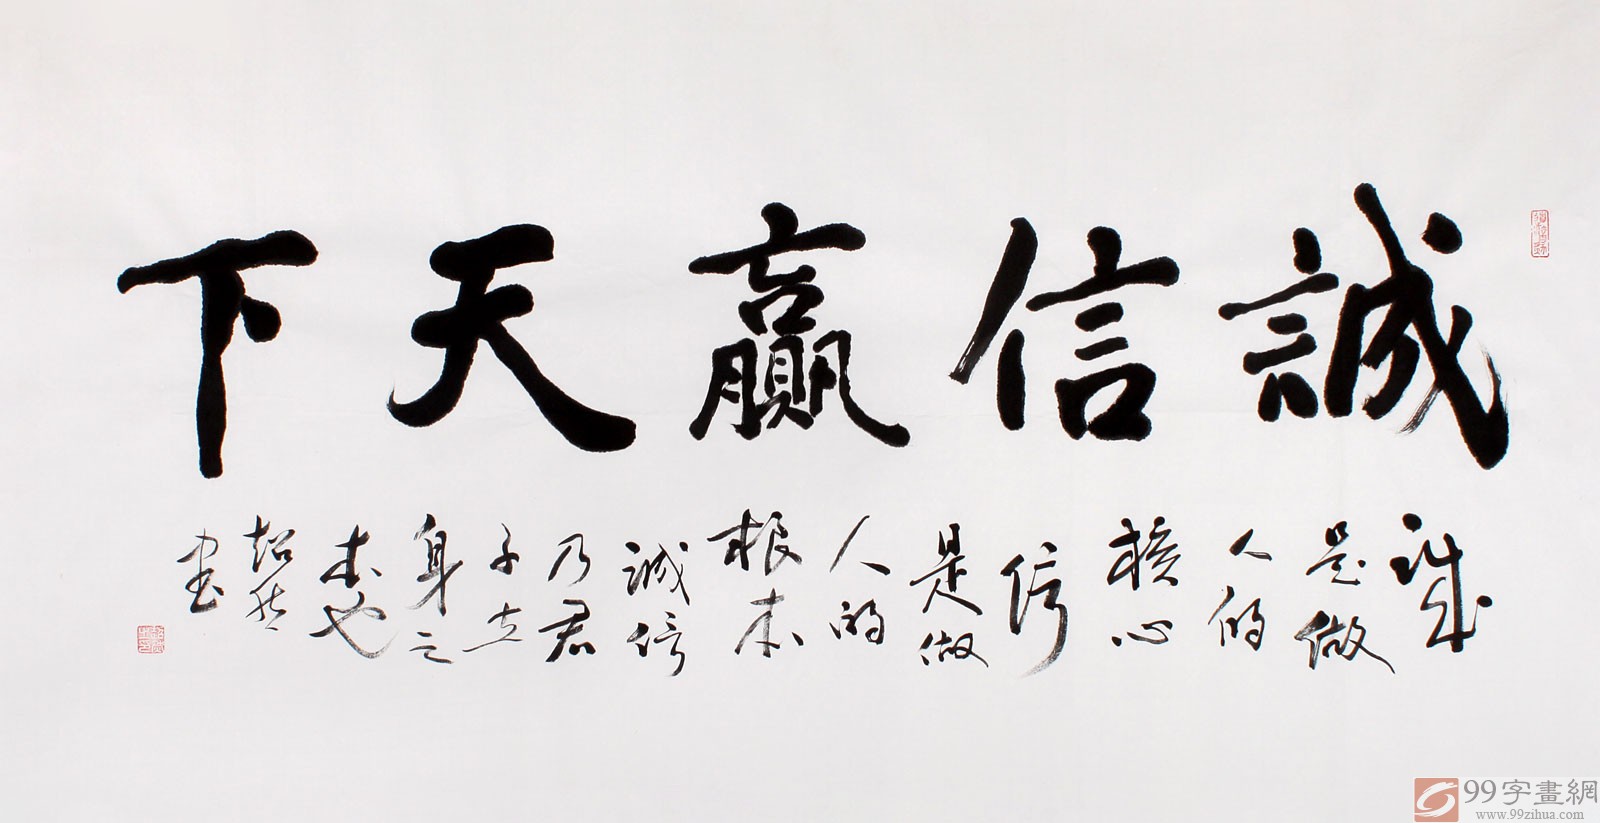 誠信贏天下
誠
是做
人的
核心
信
是做
人的
根本
誠信
乃君
子立
身之
本也
超然
书
99字畫網
www.99zihua.com